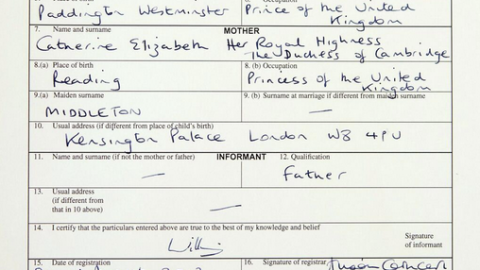 Paddington Westminster Prince of the United
Kingdom
7. Name and surname MOTHER
Catherine Elizabeth Her Royal Highness
The Duchess of Cambridge
8.(a) Place of birth 8. (b) Occupation
Reading Princess of the United
Kingdom
9.(a) Maiden surname 9. (b) Surname at marriage if different from maiden surname
MIDDLETON —
10. Usual address (if different from place of child's birth)
Kensington Palace London W8 4PU
11. Name and surname (if not the mother or father) INFORMANT 12. Qualification
— Father
13. Usual address
(if different from
that in 10 above) —
14. I certify that the particulars entered above are true to the best of my knowledge and belief
Signature
of informant
15. Date of registration 16. Signature of registrar